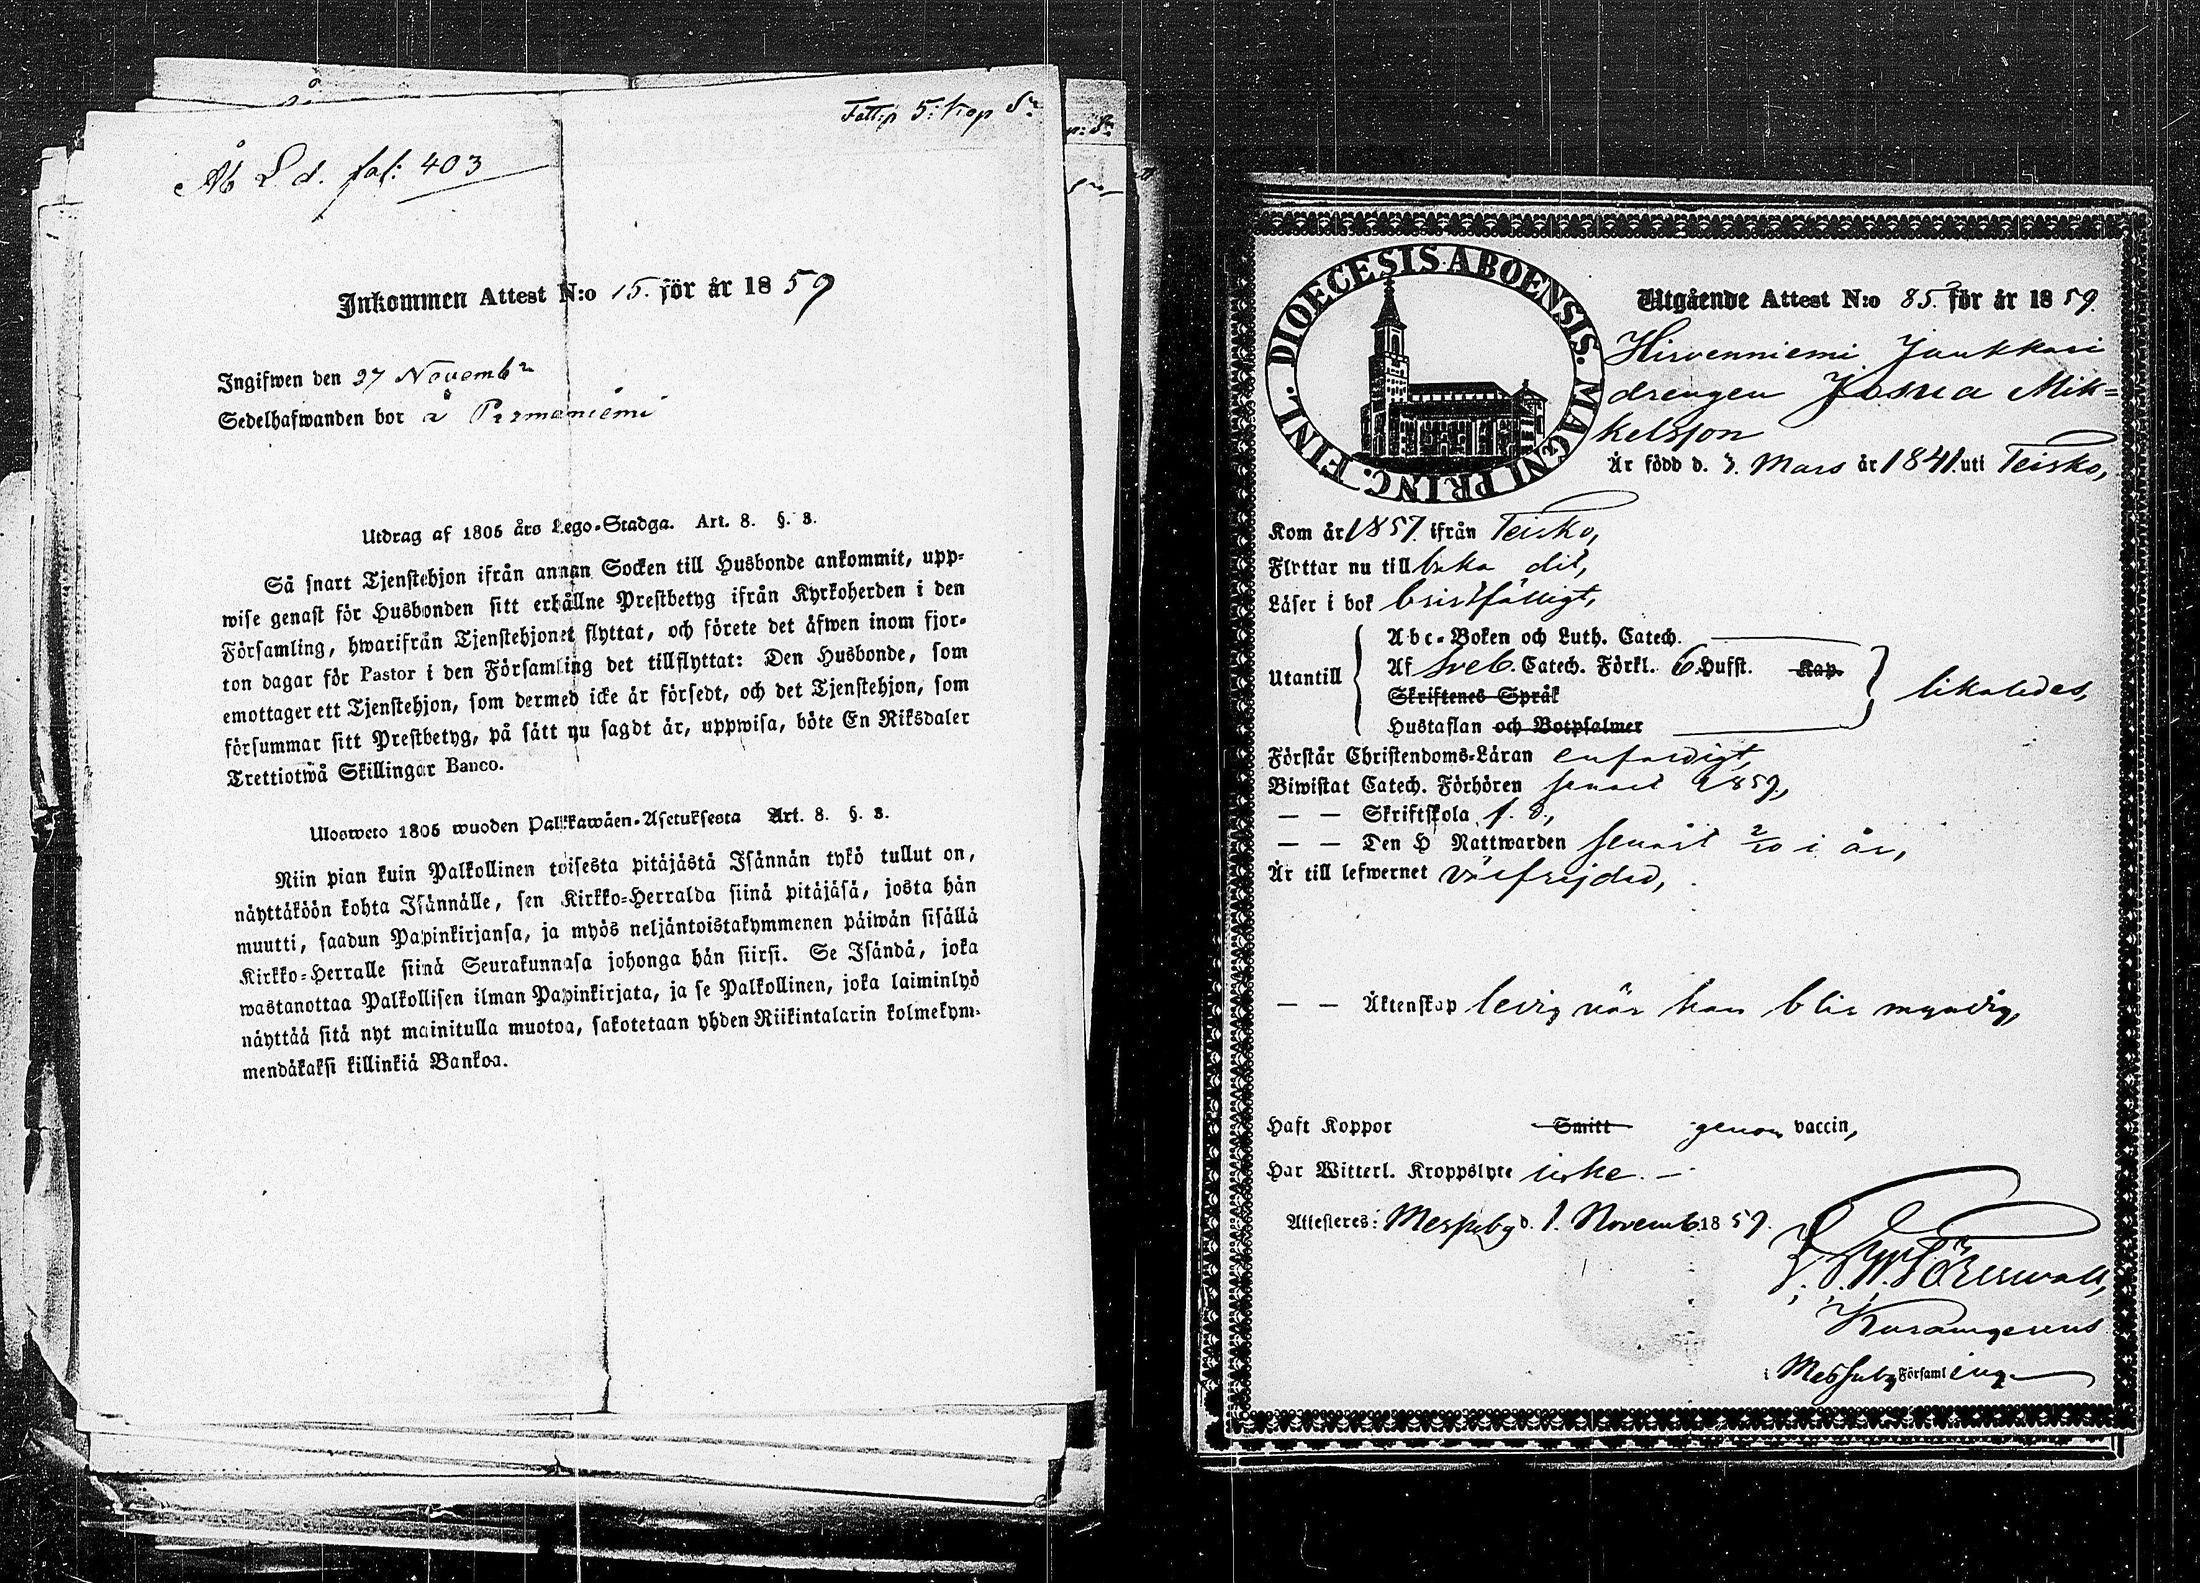 Fattip 5: kop Sr
Åb L. d. fol: 403
Inkommen Attest N:o 15. för år 1859
Ingifwen den 27 Novembr
Sedelhafwanden bor å Permaniemi
Utdrag af 1805 års Lego-Stadga. Art. 8. §. 3.
Så snart Tjenstehjon ifrån annan Socken till Husbonde ankommit, upp-
wise genast för Husbonden sitt erhållne Prestbetyg ifrån Kyrkoherden i den
Församling, hwarifrån Tjenstehjonet flyttat, och förete det äfwen inom fjor-
ton dagar för Pastor i den Församling det tillflyttat: Den Husbonde, som
emottager ett Tjenstehjon, som dermed icke är försedt, och det Tjenstehjon, som
försummar sitt Prestbetyg, på sätt nu sagdt är, uppwisa, böte En Riksdaler
Trettiotwå Skillingar Banco.
Ulosweto 1805 wuoden Palkkawäen-Asetuksesta Art. 8. §. 3.
Niin pian kuin Palkollinen toisesta pitäjästä Isännän tykö tullut on,
näyttäköön kohta Isännälle, sen Kirkko-Herralda siinä pitäjäsä, josta hän
muutti, saadun Papinkirjansa, ja myös neljäntoistakymmenen päiwän sisällä
Kirkko-Herralle siinä Seurakunnasa johonga hän siirsi. Se Isändä, joka
wastanottaa Palkollisen ilman Papinkirjata, ja se Palkollinen, joka laiminlyö
näyttää sitä nyt mainitulla muotoa, sakotetaan yhden Riikintalarin kolmekym-
mendäkaksi killinkiä Bankoa.
DIOECESIS ABOENSIS. MAGNI PRINC. FINL.
Utgående Attest N:o 85. för år 1859.
Hirvenniemi Jaukkari
drengen Josua Mik-
kelsson
Är född d. 3. Mars år 1841. uti Teisko,
Kom år 1857. ifrån Teisko,
Flyttar nu tillbaka dit,
Läser i bok bristfälligt,
Abc-Boken och Luth. Catech.
Utantill Af Sveb. Catech. Förkl. 6 Hufst. Kap. likaledes,
Skriftenes Språk
Hustaflan och Botpsalmer
Förstår Christendoms-Läran enfaldigt,
Biwistat Catech. Förhören senast 1859,
— — Skriftskola f. d.,
— — Den H Nattwarden senast 2/10 i år,
Är till lefwernet välfrejdad,
— — Äktenskap ledig när han blir myndig,
Haft Koppor Smitt genom vaccin,
Har Witterl. Kroppslyte icke. —
Attesteres: Messuby d. 1. Novemb. 1859.
i Messuby Församling